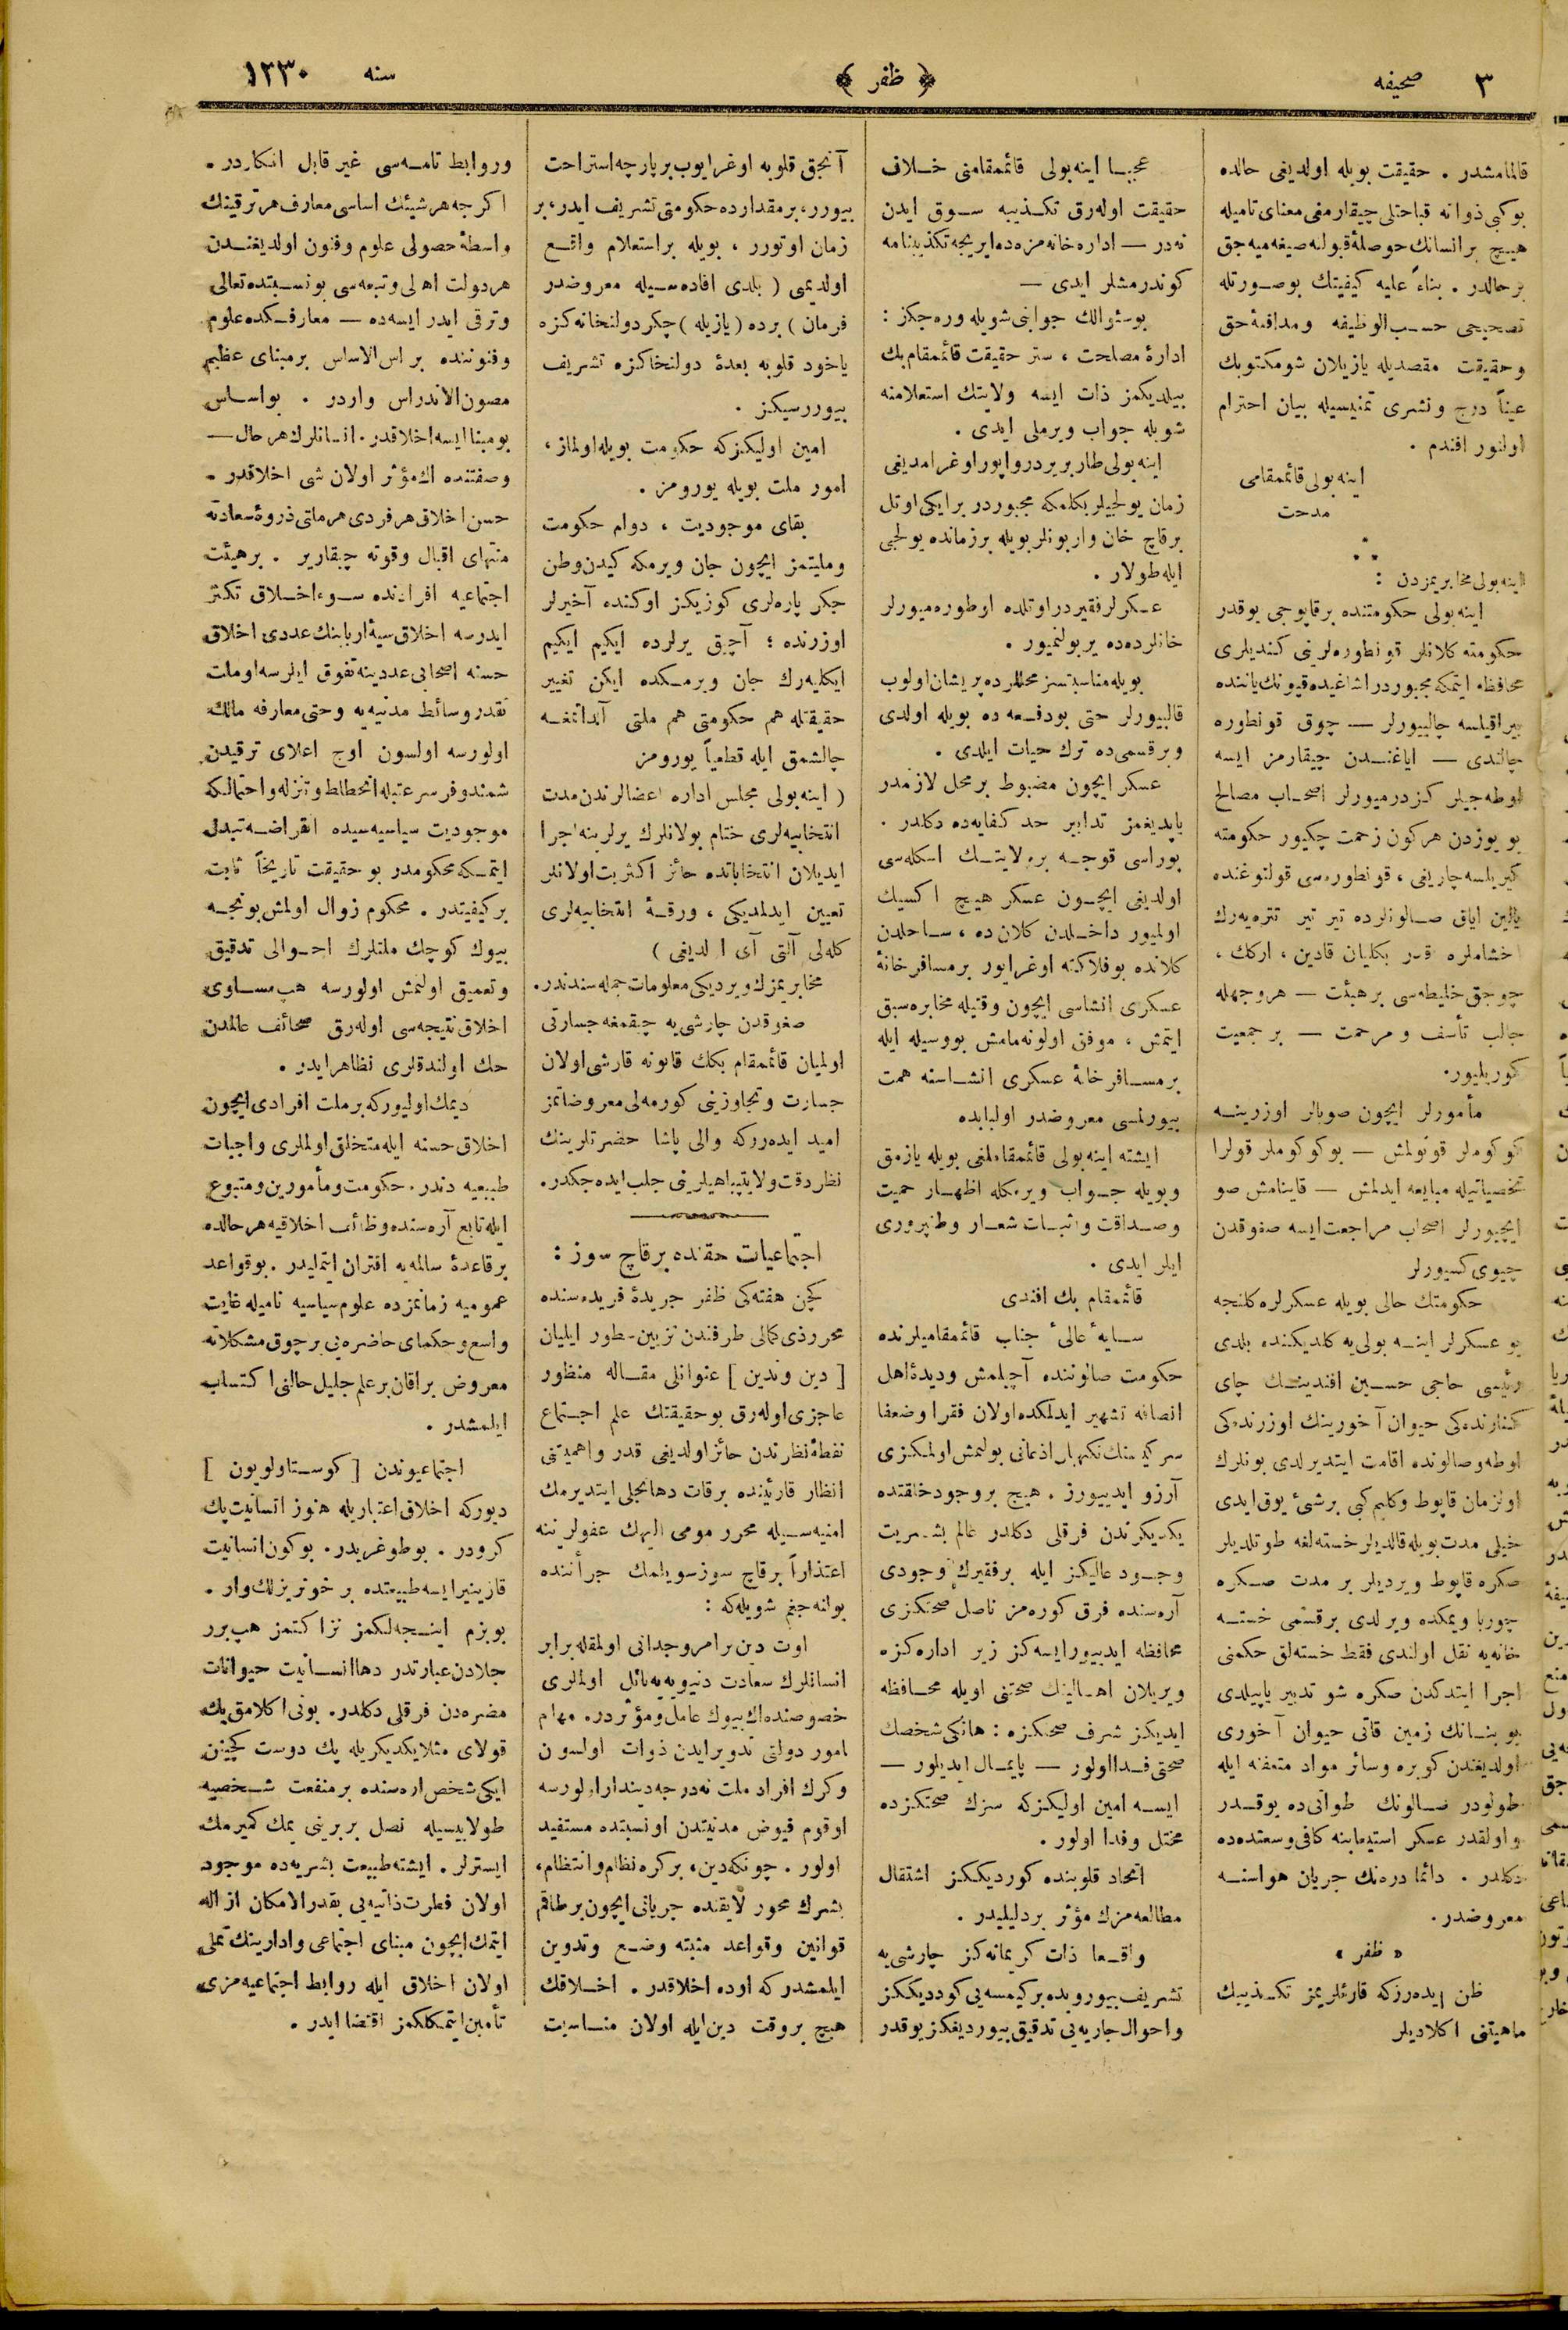 ٣ صحيفه
﴿ ظفر ﴾
سنه ١٣٣٠
قالمامشدر . حقيقت بويله اولديغى حالده
بوكبى ذواته قباحتلى چيقارمغى معناى تاميله
هيچ بر انسانك حوصلهٔ قبولنه صيغه ميه جق
بر حالدر . بناءً عليه كيفيتك بوصورتله
تصحيحى حسب الوظيفه ومدافعهٔ حق
وحقيقت مقصديله يازيلان شومكتوبك
عيناً درج ونشرى تمنيسيله بيان احترام
اولنور افندم .
اينه بولى قائممقامى
مدحت
اينه بولى مخابريمزدن :
اينه بولى حكومتنده بر قاپوجى يوقدر
حكومته كلانلر قونطوره لرينى كنديلرى
محافظه ايتمكه مجبوردر اشاغيده قپونك ياننده
بيراقيلسه چالييورلر — چوق قونطوره
چالندى — اياغندن چيقارمز ايسه
اوطه جيلر كزدرميورلر اصحاب مصالح
بو يوزدن هر كون زحمت چكيور حكومته
كيريلسه چاريغى ، قونطوره سى قولتوغنده
يالين اياق صالونلرده تير تير تتره يه رك
اخشاملره قدر بكليان قادين ، اركك ،
چوجق خليطه سى بر هيئت — هر وجهله
جالب تأسف و مرحمت — بر جمعيت
كوريليور.
مأمورلر ايچون صوبالر اوزرينه
كوكوملر قونولمش — بو كوكوملر قولرا
تخصيصاتيله مبايعه ايدلمش — قاينامش صو
ايچيورلر اصحاب مراجعت ايسه صغوقدن
چيوى كسيورلر
حكومتك حالى بويله عسكرلره كلنجه
بو عسكرلر اينه بولى يه كلديكنده بلدى
رئيسى حاجى حسين افندينك چاى
كنارنده كى حيوان آخورينك اوزرنده كى
اوطه وصالونده اقامت ايتديرلدى بونلرك
اولزمان قاپوط وكليم كبى برشئ يوق ايدى
خيلى مدت بويله قالديلر خسته لغه طوتلديلر
صكره قاپوط ويرديلر بر مدت صكره
چوربا ويمكده ويرلدى برقسمى خسته
خانه يه نقل اولندى فقط خسته لق حكمنى
اجرا ايتدكدن صكره شو تدبير ياپيلدى
بو بنانك زمين قاتى حيوان آخورى
اولديغندن كوبره وسائر مواد متعفنه ايله
طولودر صالونك طوانى ده يوقدر
و اولقدر عسكر استيعابنه كافى وسعتده ده
دكلدر . دائما دره نك جريان هواسنه
معروضدر.
« ظفر »
ظن ايده رزكه قارئلريمز تكذيبك
ماهيتنى اكلاديلر
عجبا اينه بولى قائممقامنى خلاف
حقيقت اوله رق تكذيبه سوق ايدن
نه در — اداره خانه مزه ده ايريجه تكذيبنامه
كوندرمشلر ايدى —
بوسئوالك جوابنى شويله ويره جكز :
ادارهٔ مصلحت ، ستر حقيقت قائممقام بك
بيلديكمز ذات ايسه ولايتك استعلامنه
شويله جواب ويرملى ايدى .
اينه بولى طار بر يردر واپور اوغرامديغى
زمان يولجيلر بكلمكه مجبوردر بر ايكى اوتل
بر قاچ خان وار بونلر بويله بر زمانده يولجى
ايله طولار .
عسكرلر فقيردر اوتلده اوطوره ميورلر
خانلرده ده ير بولنميور .
بويله مناسبتسز محللرده پريشان اولوب
قاليورلر حتى بودفعه ده بويله اولدى
وبر قسمى ده ترك حيات ايلدى .
عسكر ايچون مضبوط بر محل لازمدر
ياپديغمز تدابير حد كفايه ده دكلدر .
بوراسى قوجه بر ولايتك اسكله سى
اولديغى ايچون عسكر هيچ اكسيك
اولميور داخلدن كلان ده ، ساحلدن
كلانده بوفلاكته اوغرايور بر مسافر خانهٔ
عسكرى انشاسى ايچون وقتيله مخابره سبق
ايتمش ، موفق اولونه مامش بووسيله ايله
بر مسافر خانهٔ عسكرى انشاسنه همت
بيورلمسى معروضدر اولبابده
ايشته اينه بولى قائممقاملغى بويله يازمق
وبويله جواب ويرمكله اظهار حميت
وصداقت واثبات شعار وطنپرورى
ايلر ايدى .
قائممقام بك افندى
سايهٔ عالئ جناب قائممقاميلرنده
حكومت صالوننده آچيلمش وديدهٔ اهل
انصافه تشهير ايدلمكده اولان فقرا وضعفا
آرزو ايدييورز . هيچ بر وجود خلقتده
يكديكرندن فرقلى دكلدر عالم بشريت
وجود عاليكز ايله برفقيرك وجودى
آره سنده فرق كوره مز ناصل صحتكزى
محافظه ايدييور ايسه كز زير اداره كزه
ويريلان اهالينك صحتنى اويله محافظه
ايديكز شرف صحتكزه : هانكى شخصك
صحتى فدا اولور — پايمال ايديلور —
ايسه امين اوليكزكه سزك صحتكزده
مختل وفدا اولور .
اتحاد قلوبنده كورديككز اشتغال
مطالعه مزك مؤثر بردليليدر .
واقعا ذات كريمانه كز چارشى يه
تشريف بيوروبده بركيمسه يى كوردديككز
واحوال جاريه يى تدقيق بيورديغكز يوقدر
آنجق قلوبه اوغرايوب برپارچه استراحت
بيورر، برمقدارده حكومتى تشريف ايدر، بر
زمان اوتورر ، بويله براستعلام واقع
اولديمى ( بلدى افاده سيله معروضدر
فرمان ) برده ( يازيله ) چكر دولتخانه كزه
ياخود قلوبه بعدهٔ دولتخاكزه تشريف
بيوررسيكز .
امين اوليكزكه حكومت بويله اولماز ،
امور ملت بويله يورومز .
بقاى موجوديت ، دوام حكومت
ومليتمز ايچون جان ويرمكه كيدن وطن
جكر پاره لرى كوزيكز اوكنده آخيرلر
اوزرنده ؛ آچيق يرلرده ايكيم ايكيم
ايكليه رك جان ويرمكده ايكن تغيير
حقيقتله هم حكومتى هم ملتى آلداتمغه
چالشمق ايله قطعياً يورومز
( اينه بولى مجلس اداره اعضالرندن مدت
انتخابيه لرى ختام بولانلرك يرلرينه اجرا
ايديلان انتخاباتده حائز اكثريت اولانلر
تعيين ايدلمديكى ، ورقهٔ انتخابيه لرى
كله لى آلتى آى اولديغى )
مخابريمزك ويرديكى معلومات جمله سندندر.
صغوقدن چارشى يه چيقمغه جسارتى
اولميان قائممقام بكك قانونه قارشى اولان
جسارت وتجاوزينى كورمه لى معروضاتمز
اميد ايده رزكه والى پاشا حضرتلرينك
نظردقت ولايتپناهيلرينى جلب ايده جكدر.
اجتماعيات حقنده برقاچ سوز :
كچن هفته كى ظفر جريدهٔ فريده سنده
محرر ذى كمالى طرفندن تزيين سطور ايليان
[ دين وتدين ] عنوانلى مقاله منظور
عاجزى اوله رق بوحقيقتك علم اجتماع
نقطهٔ نظرندن حائز اولديغى قدر واهميتنى
انظار قارئينده برقات دها تجلى ايتديرمك
امنيه سيله محرر مومى اليهك عفولرينه
اعتذاراً برقاچ سوز سويلمك جرأتنده
بولنه جغم شويله كه :
اوت دين برامر وجدانى اولمقله برابر
انسانلرك سعادت دنيويه يه نائل اولملرى
خصوصنده اك بيوك عامل ومؤثردر. مهام
امور دولتى تدوير ايدن ذوات اولسون
وكرك افراد ملت نه درجه ديندار اولورسه
اوقوم فيوض مدنيتدن اونسبتده مستفيد
اولور . چونكه دين ، بركره نظام وانتظام،
بشرك محور لايقنده جريانى ايچون بر طاقم
قوانين وقواعد مثبته وضع وتدوين
ايلمشدر كه اوده اخلاقدر . اخلاقك
هيچ بروقت دين ايله اولان مناسبت
وروابط تامه سى غير قابل انكاردر .
اكرچه هرشيئك اساسى معارف هرترقينك
واسطهٔ حصولى علوم وفنون اولديغندن
هر دولت اهلى وتبعه سى بونسبتده تعالى
وترقى ايدر ايسه ده — معارفكده علوم
وفنوننده بر اس الاساس بر مبناى عظيم
مصون الاندراس واردر . بو اساس
بومبنا ايسه اخلاقدر. انسانلرك هر حال —
وصفتنده اك مؤثر اولان شى اخلاقدر .
حسن اخلاق هر فردى هر ملتى ذروهٔ سعادته
منتهاى اقبال وقوته چيقارير . بر هيئت
اجتماعيه افرادنده سوء اخلاق تكثر
ايدرسه اخلاق سيئهٔ اربابنك عددى اخلاق
حسنه اصحابى عددينه تفوق ايلرسه اوملت
نقدر وسائط مدنيه يه وحتى معارفه مالك
اولورسه اولسون اوج اعلاى ترقيدن
شمندوفر سرعتيله انحطاط وتنزله واحتمالكه
موجوديت سياسيه سيده انقراضه تبدل
ايتمكه محكومدر بو حقيقت تاريخاً ثابت
بركيفيتدر . محكوم زوال اولمش بونجه
بيوك كوچك ملتلرك احوالى تدقيق
وتعميق اولنمش اولورسه هپ مساوى
اخلاق نتيجه سى اوله رق صحائف عالمدن
حك اولندقلرى تظاهر ايدر .
ديمك اوليوركه بر ملت افرادى ايچون
اخلاق حسنه ايله متخلق اولملرى واجبات
طبيعيه دندر. حكومت ومأمورين ومتبوع
ايله تابع آره سنده وظائف اخلاقيه هر حالده
بر قاعدهٔ سالمه يه اقتران ايتمليدر . بوقواعد
عموميه زمانمزده علوم سياسيه ناميله غايت
واسع وحكماى حاضره يى بر چوق مشكلاته
معروض براقان بر علم جليل حالنى اكتساب
ايلمشدر .
اجتماعيوندن [ كوستاولوبون ]
ديوركه اخلاق اعتباريله هنوز انسانيت پك
كرودر . بوطوغريدر. بوكون انسانيت
قازينير ايسه طبيعتده بر خونريزلك وار .
بوبزم اينجه لكمز نزاكتمز هپ برر
جلادن عبارتدر دها انسانيت حيوانات
مضره دن فرقلى دكلدر. بونى اكلامق پك
قولاى مثلا يكديكريله پك دوست كچينن
ايكى شخص اره سنده بر منفعت شخصيه
طولاييسيله نصل بربرينى يمك كميرمك
ايسترلر . ايشته طبيعت بشريه ده موجود
اولان فطرت ذاتيه يى بقدر الامكان ازاله
ايتمك ايچون مبناى اجتماعى وادارينك تملى
اولان اخلاق ايله روابط اجتماعيه مزى
تأمين ايتمكلكمز اقتضا ايدر .